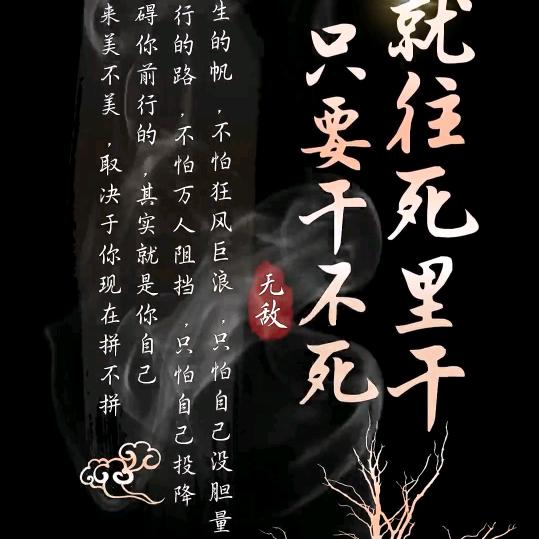 就往死里干
只要干不死
无敌
生的帆，不怕狂风巨浪，只怕自己没胆量
行的路，不怕万人阻挡，只怕自己投降
碍你前行的，其实就是你自己
来美不美，取决于你现在拼不拼